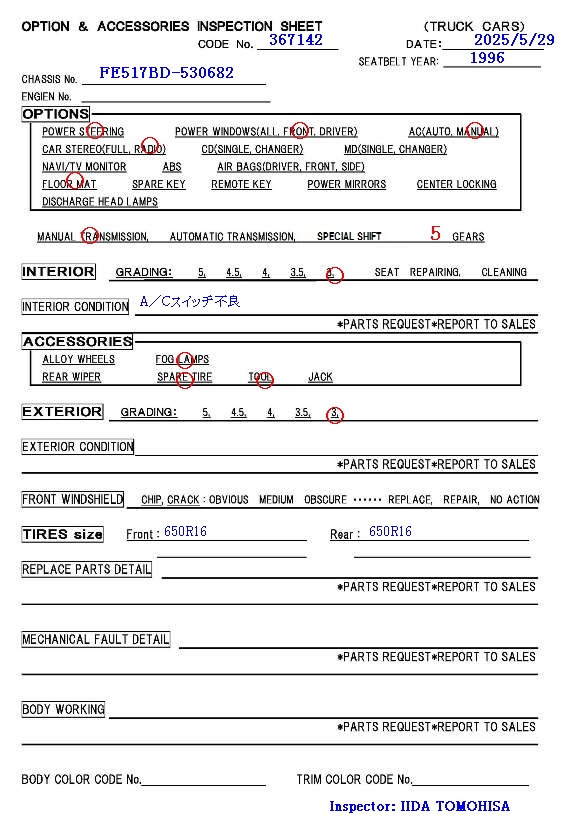 OPTION & ACCESSORIES INSPECTION SHEET (TRUCK CARS)
CODE No. 367142 DATE: 2025/5/29
SEATBELT YEAR: 1996
CHASSIS No. FE517BD-530682
ENGIEN No.
OPTIONS
POWER STEERING POWER WINDOWS(ALL, FRONT, DRIVER) AC(AUTO, MANUAL)
CAR STEREO(FULL, RADIO) CD(SINGLE, CHANGER) MD(SINGLE, CHANGER)
NAVI/TV MONITOR ABS AIR BAGS(DRIVER, FRONT, SIDE)
FLOOR MAT SPARE KEY REMOTE KEY POWER MIRRORS CENTER LOCKING
DISCHARGE HEAD LAMPS
MANUAL TRANSMISSION, AUTOMATIC TRANSMISSION, SPECIAL SHIFT 5 GEARS
INTERIOR GRADING: 5, 4.5, 4, 3.5, 3, SEAT REPAIRING, CLEANING
INTERIOR CONDITION A/Cスイッチ不良
*PARTS REQUEST*REPORT TO SALES
ACCESSORIES
ALLOY WHEELS FOG LAMPS
REAR WIPER SPARE TIRE TOOL JACK
EXTERIOR GRADING: 5, 4.5, 4, 3.5, 3,
EXTERIOR CONDITION
*PARTS REQUEST*REPORT TO SALES
FRONT WINDSHIELD CHIP, CRACK : OBVIOUS MEDIUM OBSCURE ······ REPLACE, REPAIR, NO ACTION
TIRES size Front : 650R16 Rear : 650R16
REPLACE PARTS DETAIL
*PARTS REQUEST*REPORT TO SALES
MECHANICAL FAULT DETAIL
*PARTS REQUEST*REPORT TO SALES
BODY WORKING
*PARTS REQUEST*REPORT TO SALES
BODY COLOR CODE No. TRIM COLOR CODE No.
Inspector: IIDA TOMOHISA